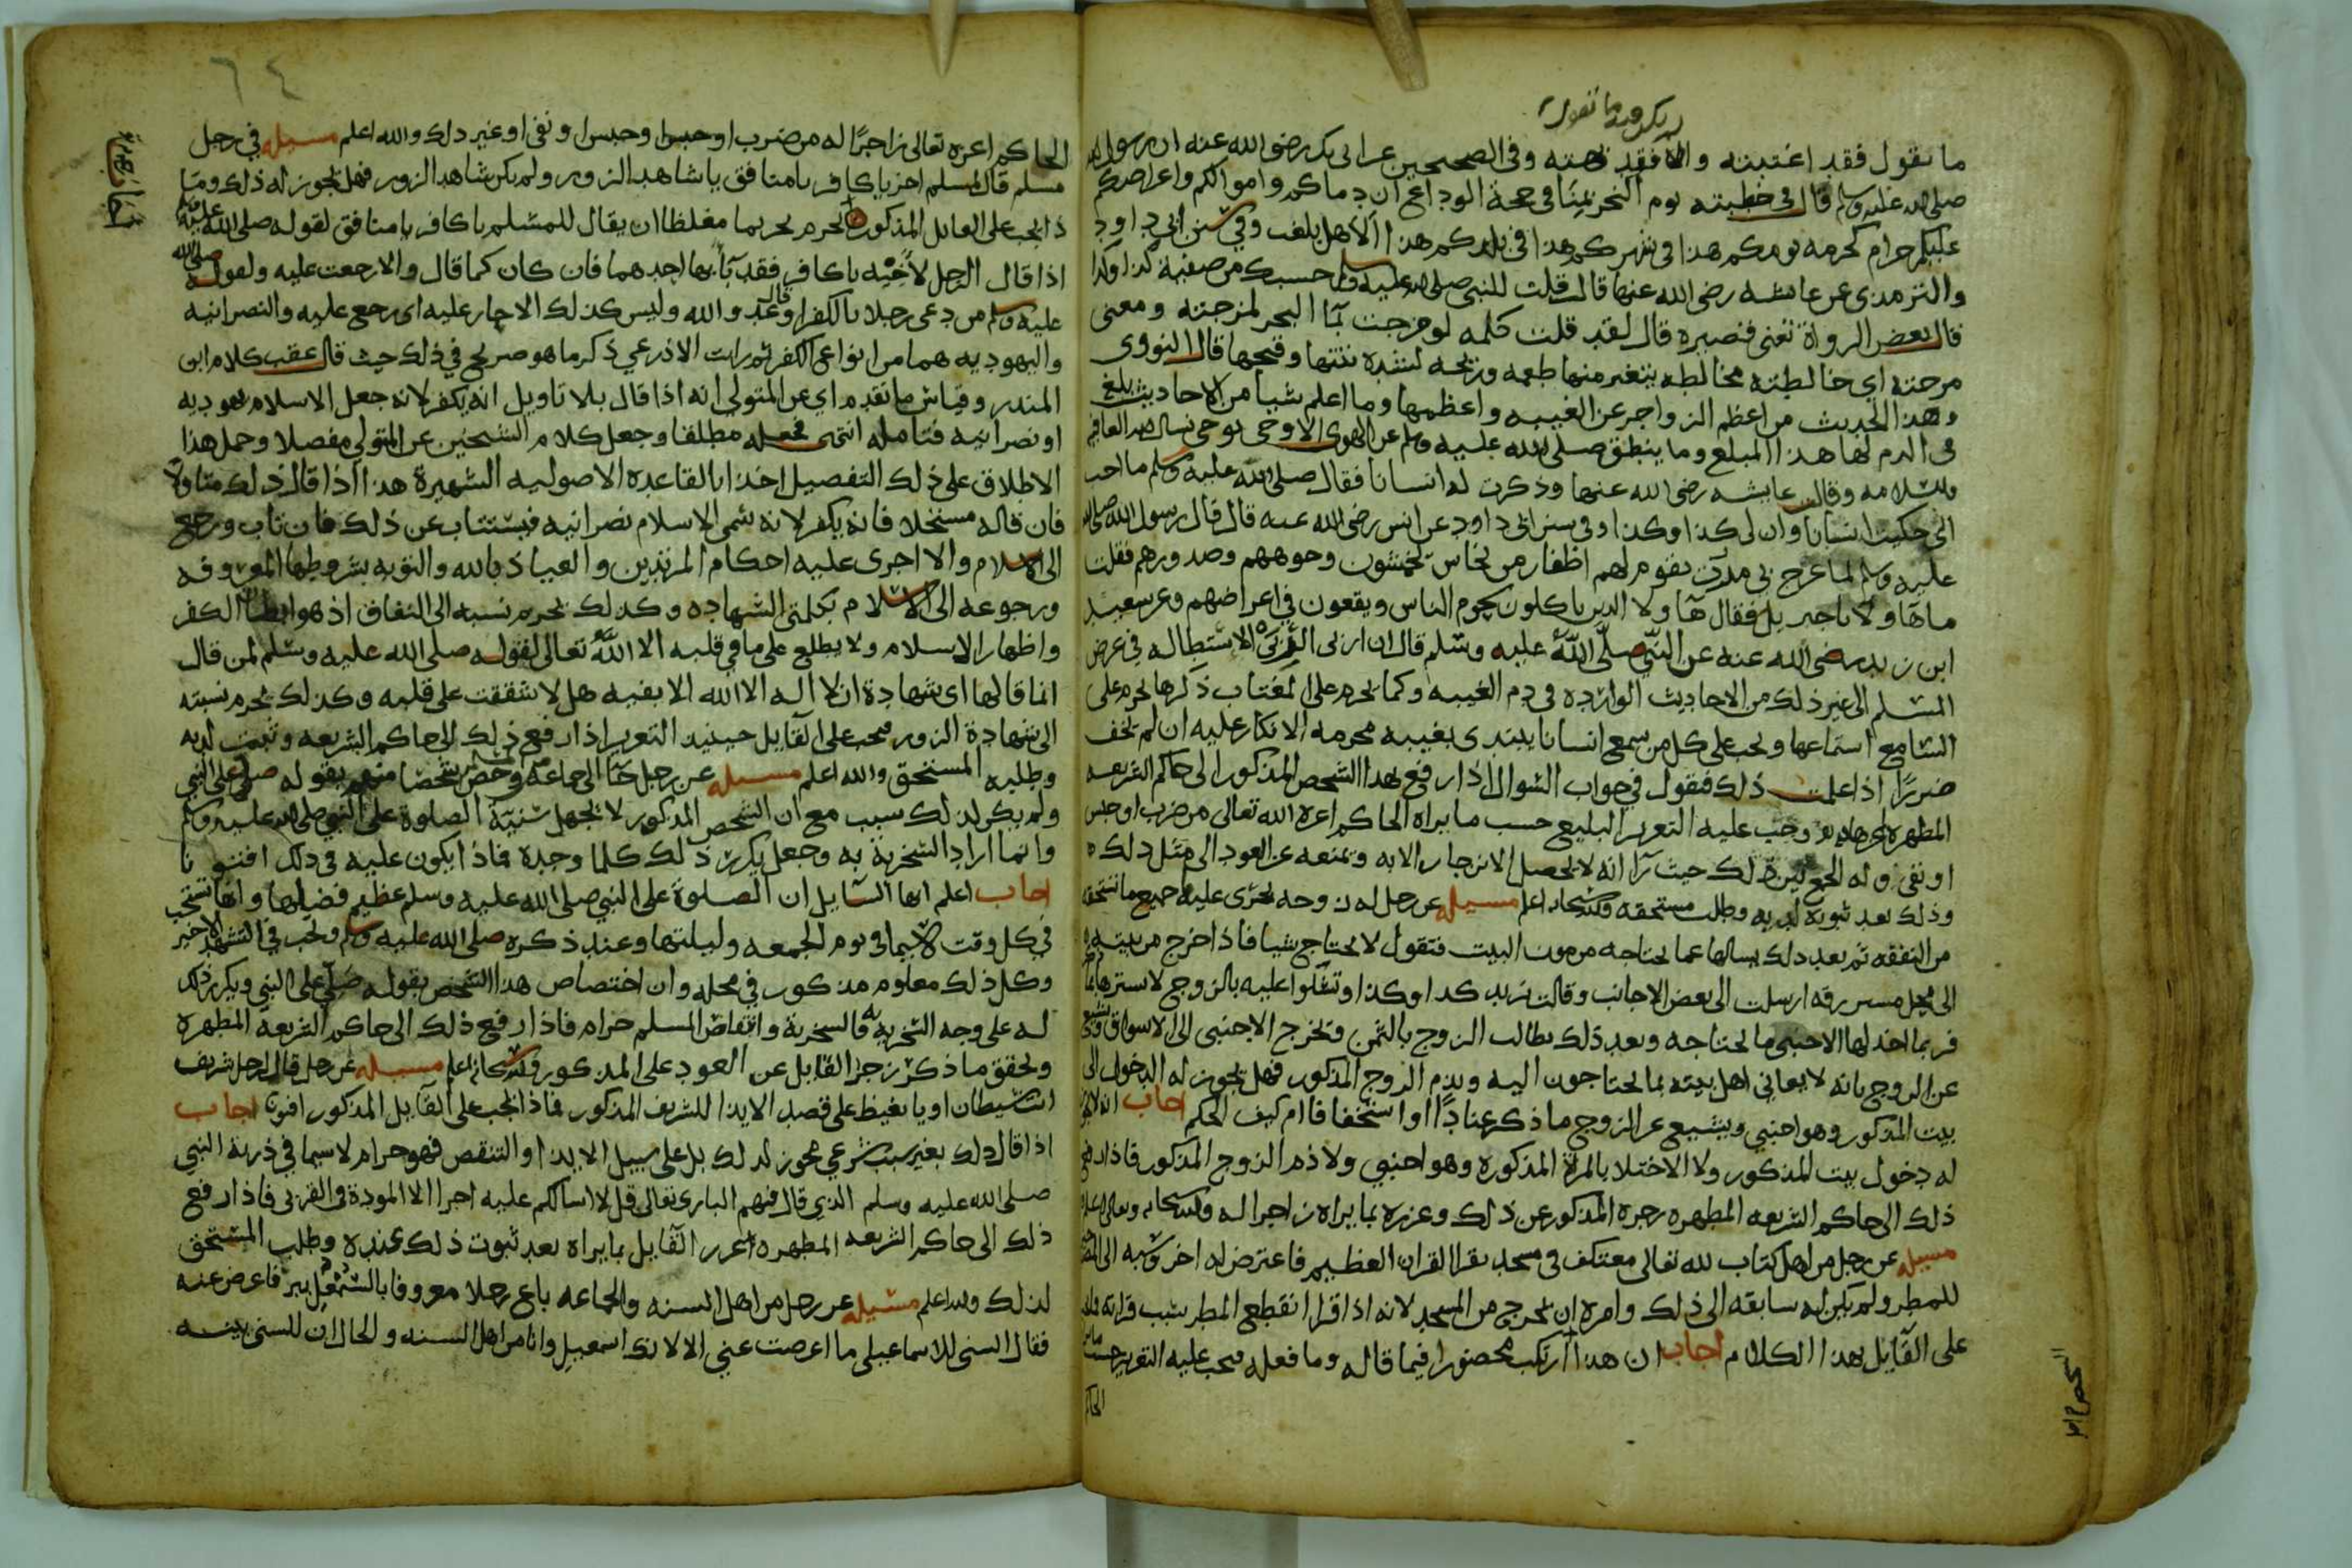 لم يكن فيه ما تقول
ما تقول فقد اغتبته والا فقد بهته وفي الصحيحين عن ابي بكر رضي الله عنه ان رسول الله
صلى الله عليه وسلم قال في خطبته يوم النحر بمنا في حجة الوداع ان دماكم واموالكم واعراضكم
عليكم حرام كحرمه يومكم هذا في شهركم هذا في بلدكم هذا الا هل بلغت وفي سنن ابي داود
والترمذي عن عايشه رضي الله عنها قالت قلت للنبي صلى الله عليه وسلم حسبك من صفية كذا وكذا
قال بعض الرواة تعني قصيره قال لقد قلت كلمه لو مزجت بما البحر لمزجته ومعنى
مزجته اي خالطته مخالطه يتغير منها طعمه وريحه لشده نتنها وقبحها قال النووي
وهذا الحديث من اعظم الزواجر عن الغيبه واعظمها وما اعلم شيا من الاحاديث بلغ
في الذم لها هذا المبلغ وما ينطق صلى الله عليه وسلم عن الهوى ان هو الا وحي يوحى نسال الله العافيه
والسلامه وقالت عايشه رضي الله عنها وذكرت له انسانا فقال صلى الله عليه وسلم ما احب
اني حكيت انسانا وان لي كذا وكذا وفي سنن ابي داود عن انس رضي الله عنه قال قال رسول الله صلى الله
عليه وسلم لما عرج بي مررت بقوم لهم اظفار من نحاس يخمشون وجوههم وصدورهم فقلت
ما هاولا يا جبريل فقال هاولا الذين ياكلون لحوم الناس ويقعون في اعراضهم وعن سعيد
ابن زيد رضي الله عنه عن النبي صلى الله عليه وسلم قال ان اربى الربى الاستطاله في عرض
المسلم الى غير ذلك من الاحاديث الوارده في ذم الغيبه وكما يحرم على المغتاب ذكرها يحرم على
السامع استماعها ويجب على كل من سمع انسانا يبتدي بغيبه محرمه الانكار عليه ان لم يخف
ضررا اذا علمت ذلك فنقول في جواب السوال اذا رفع هذا الشخص المذكور الى حاكم الشريعه
المطهره وجب عليه التعزير البليغ حسب ما يراه الحاكم اعزه الله تعالى من ضرب او حبس
او نفي وله الجمع بين ذلك حيث رآا انه لا يحصل الانزجار الا به ويمنعه عن العود الى مثل ذلك
وذلك بعد ثبوته لديه وطلب مستحقه والله سبحانه اعلم مسيله عن رجل له زوجه يجري عليها جميع ما تستحقه
من النفقه ثم بعد ذلك يسالها عما يحتاجه من مون البيت فتقول لا يحتاج شيا فاذا خرج من بيته
الى محل رزقه ارسلت الى بعض الاجانب وقالت نريد كذا وكذا وتشكوا عليه بالزوج
فربما اخذ لها الاجنبي ما يحتاجه وبعد ذلك يطالب الزوج بالثمن ويخرج الاجنبي الى الاسواق ويشيع
عن الزوج بانه لا يعاني اهل بيته بما يحتاجون اليه ويذم الزوج المذكور فهل يجوز له الدخول الى
بيت المذكور وهو اجنبي ويشيع عن الزوج ما ذكر عنادا او استخفافا ام كيف الحكم اجاب انه لا يجوز
له دخول بيت المذكور ولا الاختلا بالمراة المذكوره وهو اجنبي ولا ذم الزوج المذكور فاذا رفع
ذلك الى حاكم الشريعه المطهره زجره المذكور عن ذلك وعزره بما يراه زاجرا له والله سبحانه وتعالى اعلم
مسيله عن رجل من اهل كتاب لله تعالى معتكف في مسجد يقرا القران العظيم فاعترض له اخر ونسبه الى
للمطر ولم يكن له سابقه الى ذلك وامره ان يخرج من المسجد لانه اذا قرا انقطع المطر بسبب قراته
على القايل بهذا الكلام اجاب ان هذا ارتكب محضورا فيما قاله وما فعله فيجب عليه التعزير حسب ما يراه
الحاكم
٦٤
الحاكم اعزه تعالى زاجرا له من ضرب او حبس ونفي او غير ذلك والله اعلم مسيله في رجل
مسلم قال لمسلم اخر يا كافر يا منافق يا شاهد الزور ولم يكن شاهد الزور فهل يجوز له ذلك وما
ذا يجب على القايل المذكور يحرم تحريما مغلظا ان يقال للمسلم يا كافر يا منافق لقوله صلى الله عليه وسلم
اذا قال الرجل لاخيه يا كافر فقد بآ بها احدهما فان كان كما قال والا رجعت عليه ولقوله صلى الله
عليه وسلم من دعى رجلا بالكفر او قال عدو الله وليس كذلك الا حار عليه اى رجع عليه والنصرانيه
واليهوديه هما من انواع الكفر ثم رايت الاذرعي ذكر ما هو صريح في ذلك حيث قال عقب كلام ابن
المنذر وقياس ما تقدم اي عن المتولي انه اذا قال بلا تاويل انه يكفر لانه جعل الاسلام يهوديه
او نصرانيه فتامله انتهى فجعله مطلقا وجعل كلام الشيخين عن المتولي مفصلا وحمل هذا
الاطلاق على ذلك التفصيل اخذا بالقاعده الاصوليه الشهيرة هذا اذا قال ذلك متاولا
فان قاله مستحلا فانه يكفر لانه سمى الاسلام نصرانيه فيستتاب عن ذلك فان تاب ورجع
الى الاسلام والا اجرى عليه احكام المرتدين والعياذ بالله والتوبه بشروطها المعروفه
ورجوعه الى الاسلام بكلمتي الشهاده وكذلك يحرم نسبه الى النفاق اذ هو ابطان الكفر
واظهار الاسلام ولا يطلع على ما في قلبه الا الله تعالى لقوله صلى الله عليه وسلم لمن قال
انما قالها اى شهادة ان لا اله الا الله الا بفيه هل لا شققت على قلبه وكذلك يحرم نسبته
الى شهادة الزور فيجب على القايل حينيذ التعزير اذا رفع ذلك الى حاكم الشريعه وثبت لديه
وطلبه المستحق والله اعلم مسيله عن رجل جآ الى جماعه وخص شخصا منهم بقوله صلي على النبي
ولم يكن لذلك سبب مع ان الشخص المذكور لا يجهل سنية الصلوة على النبي صلى الله عليه وسلم
وانما اراد السخرية به وجعل يكرر ذلك كلما وجده فماذا يكون عليه في ذلك افتونا
اجاب اعلم ايها السايل ان الصلوة على النبي صلى الله عليه وسلم عظيم فضلها وانها تستحب
في كل وقت لا سيما في يوم الجمعه وليلتها وعند ذكره صلى الله عليه وسلم وتجب في التشهد الاخير
وكل ذلك معلوم مذكور في محله وان اختصاص هذا الشخص بقوله صلي على النبي ويكرر ذلك
له على وجه السخرية فالسخرية وانتقاص المسلم حرام فاذا رفع ذلك الى حاكم الشريعة المطهره
وتحقق ما ذكر زجر القايل عن العود على المذكور والله سبحانه اعلم مسيله عن رجل قال لرجل شريف
انت شيطان او يا بغيظ على قصد الايذا للشريف المذكور فماذا يجب على القايل المذكور افتونا اجاب
اذا قال ذلك بغير سبب شرعي مجوز لذلك بل على سبيل الايذا او التنقص فهو حرام لا سيما في ذرية النبي
صلى الله عليه وسلم الذي قال فيهم البارى تعالى قل لا اسالكم عليه اجرا الا المودة في القربى فاذا رفع
ذلك الى حاكم الشريعه المطهره عزر القايل بما يراه بعد ثبوت ذلك عنده وطلب المستحق
لذلك والله اعلم مسيله عن رجل من اهل السنه والجماعه باع رجلا معروفا فاعرض عنه
فقال السني للاسماعيلي ما اعرضت عني الا لانك اسمعيلي وانا من اهل السنه والحال ان للسني بينه